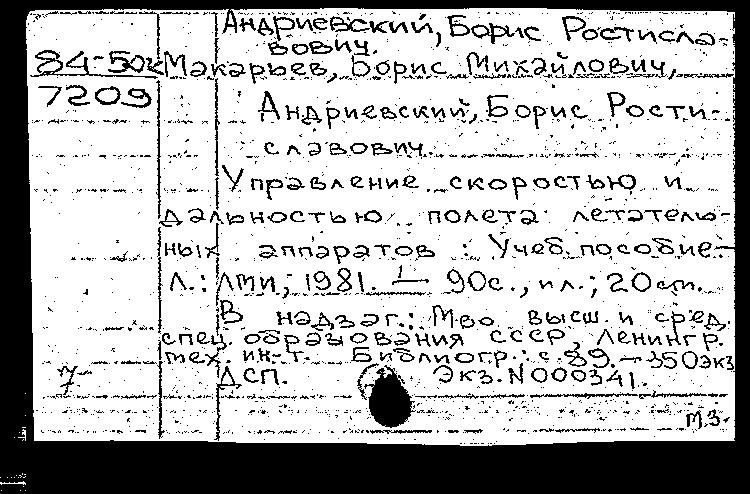 Андриевский, Борис Ростисла-
вович.
84-50к Макарьев, Борис Михайлович,
7209
Андриевский, Борис Рости-
славович.
Управление скоростью и
дальностью полета летатель-
ных аппаратов : Учеб. пособие.-
Л.: ЛМИ, 1981. — 90с., ил.; 20см.
В надзаг.: М-во высш. и сред.
спец. образования СССР, Ленингр.
мех. ин-т. Библиогр.: с. 89. — 350экз
7 ДСП. Экз. N 000341.
М.З.